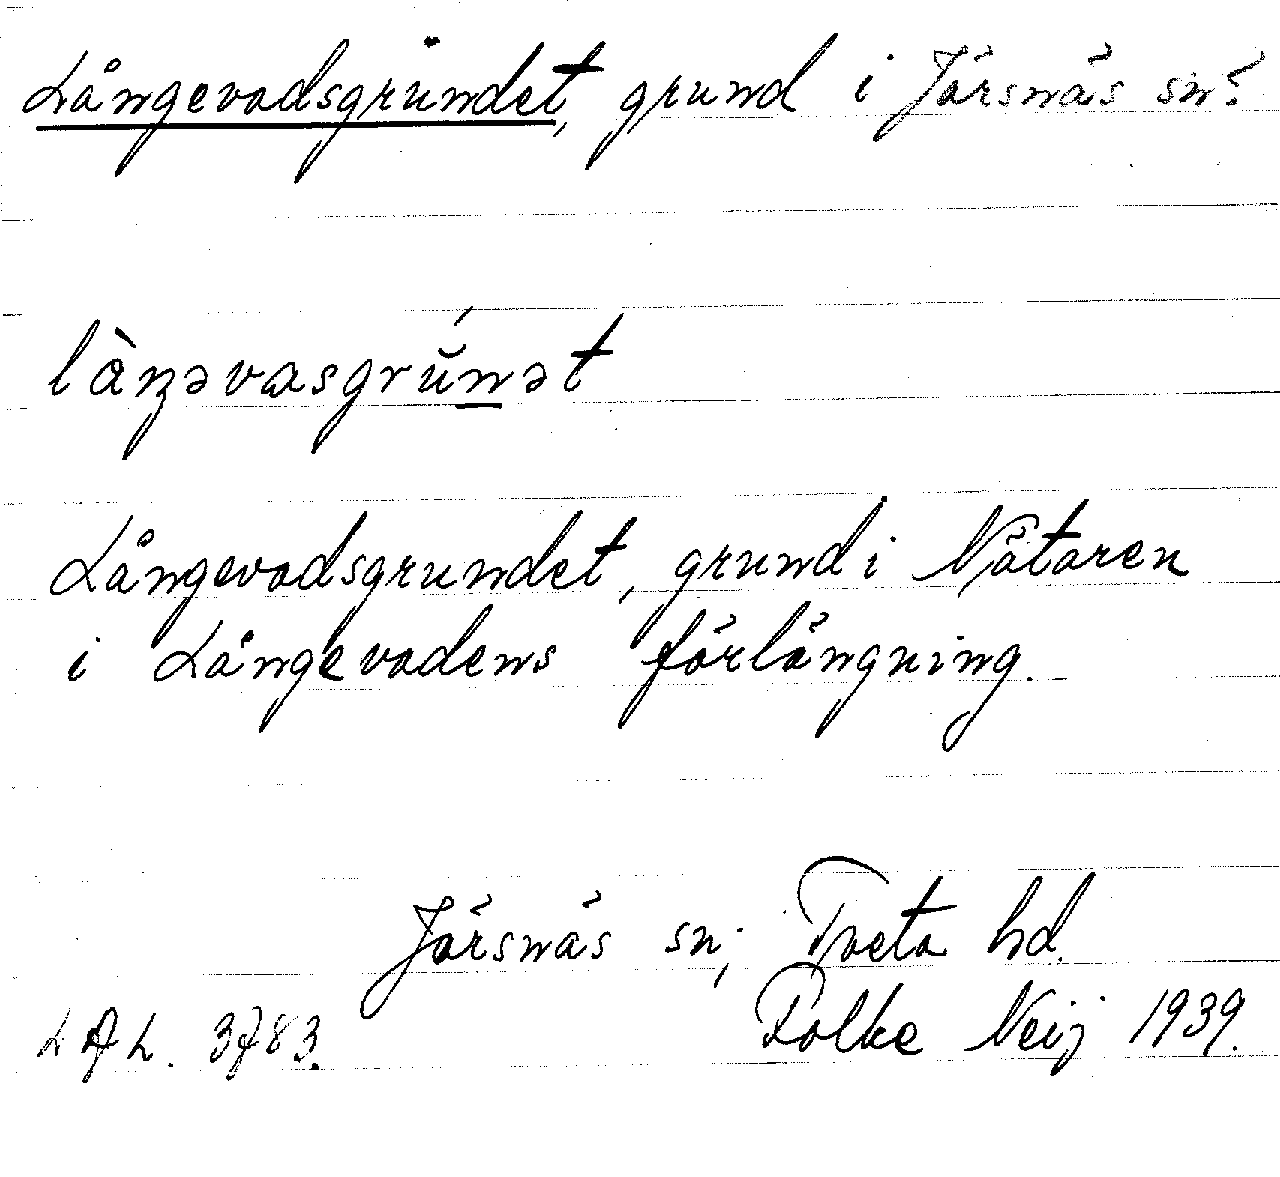 Långevadsgrundet, grund i Järsnäs sn.
làŋəvasgrŭ́nət
Långevadsgrundet, grund i Nätaren
i Långevadens förlängning.
Järsnäs sn; Tveta hd.
LAL. 3783. Folke Neij 1939.